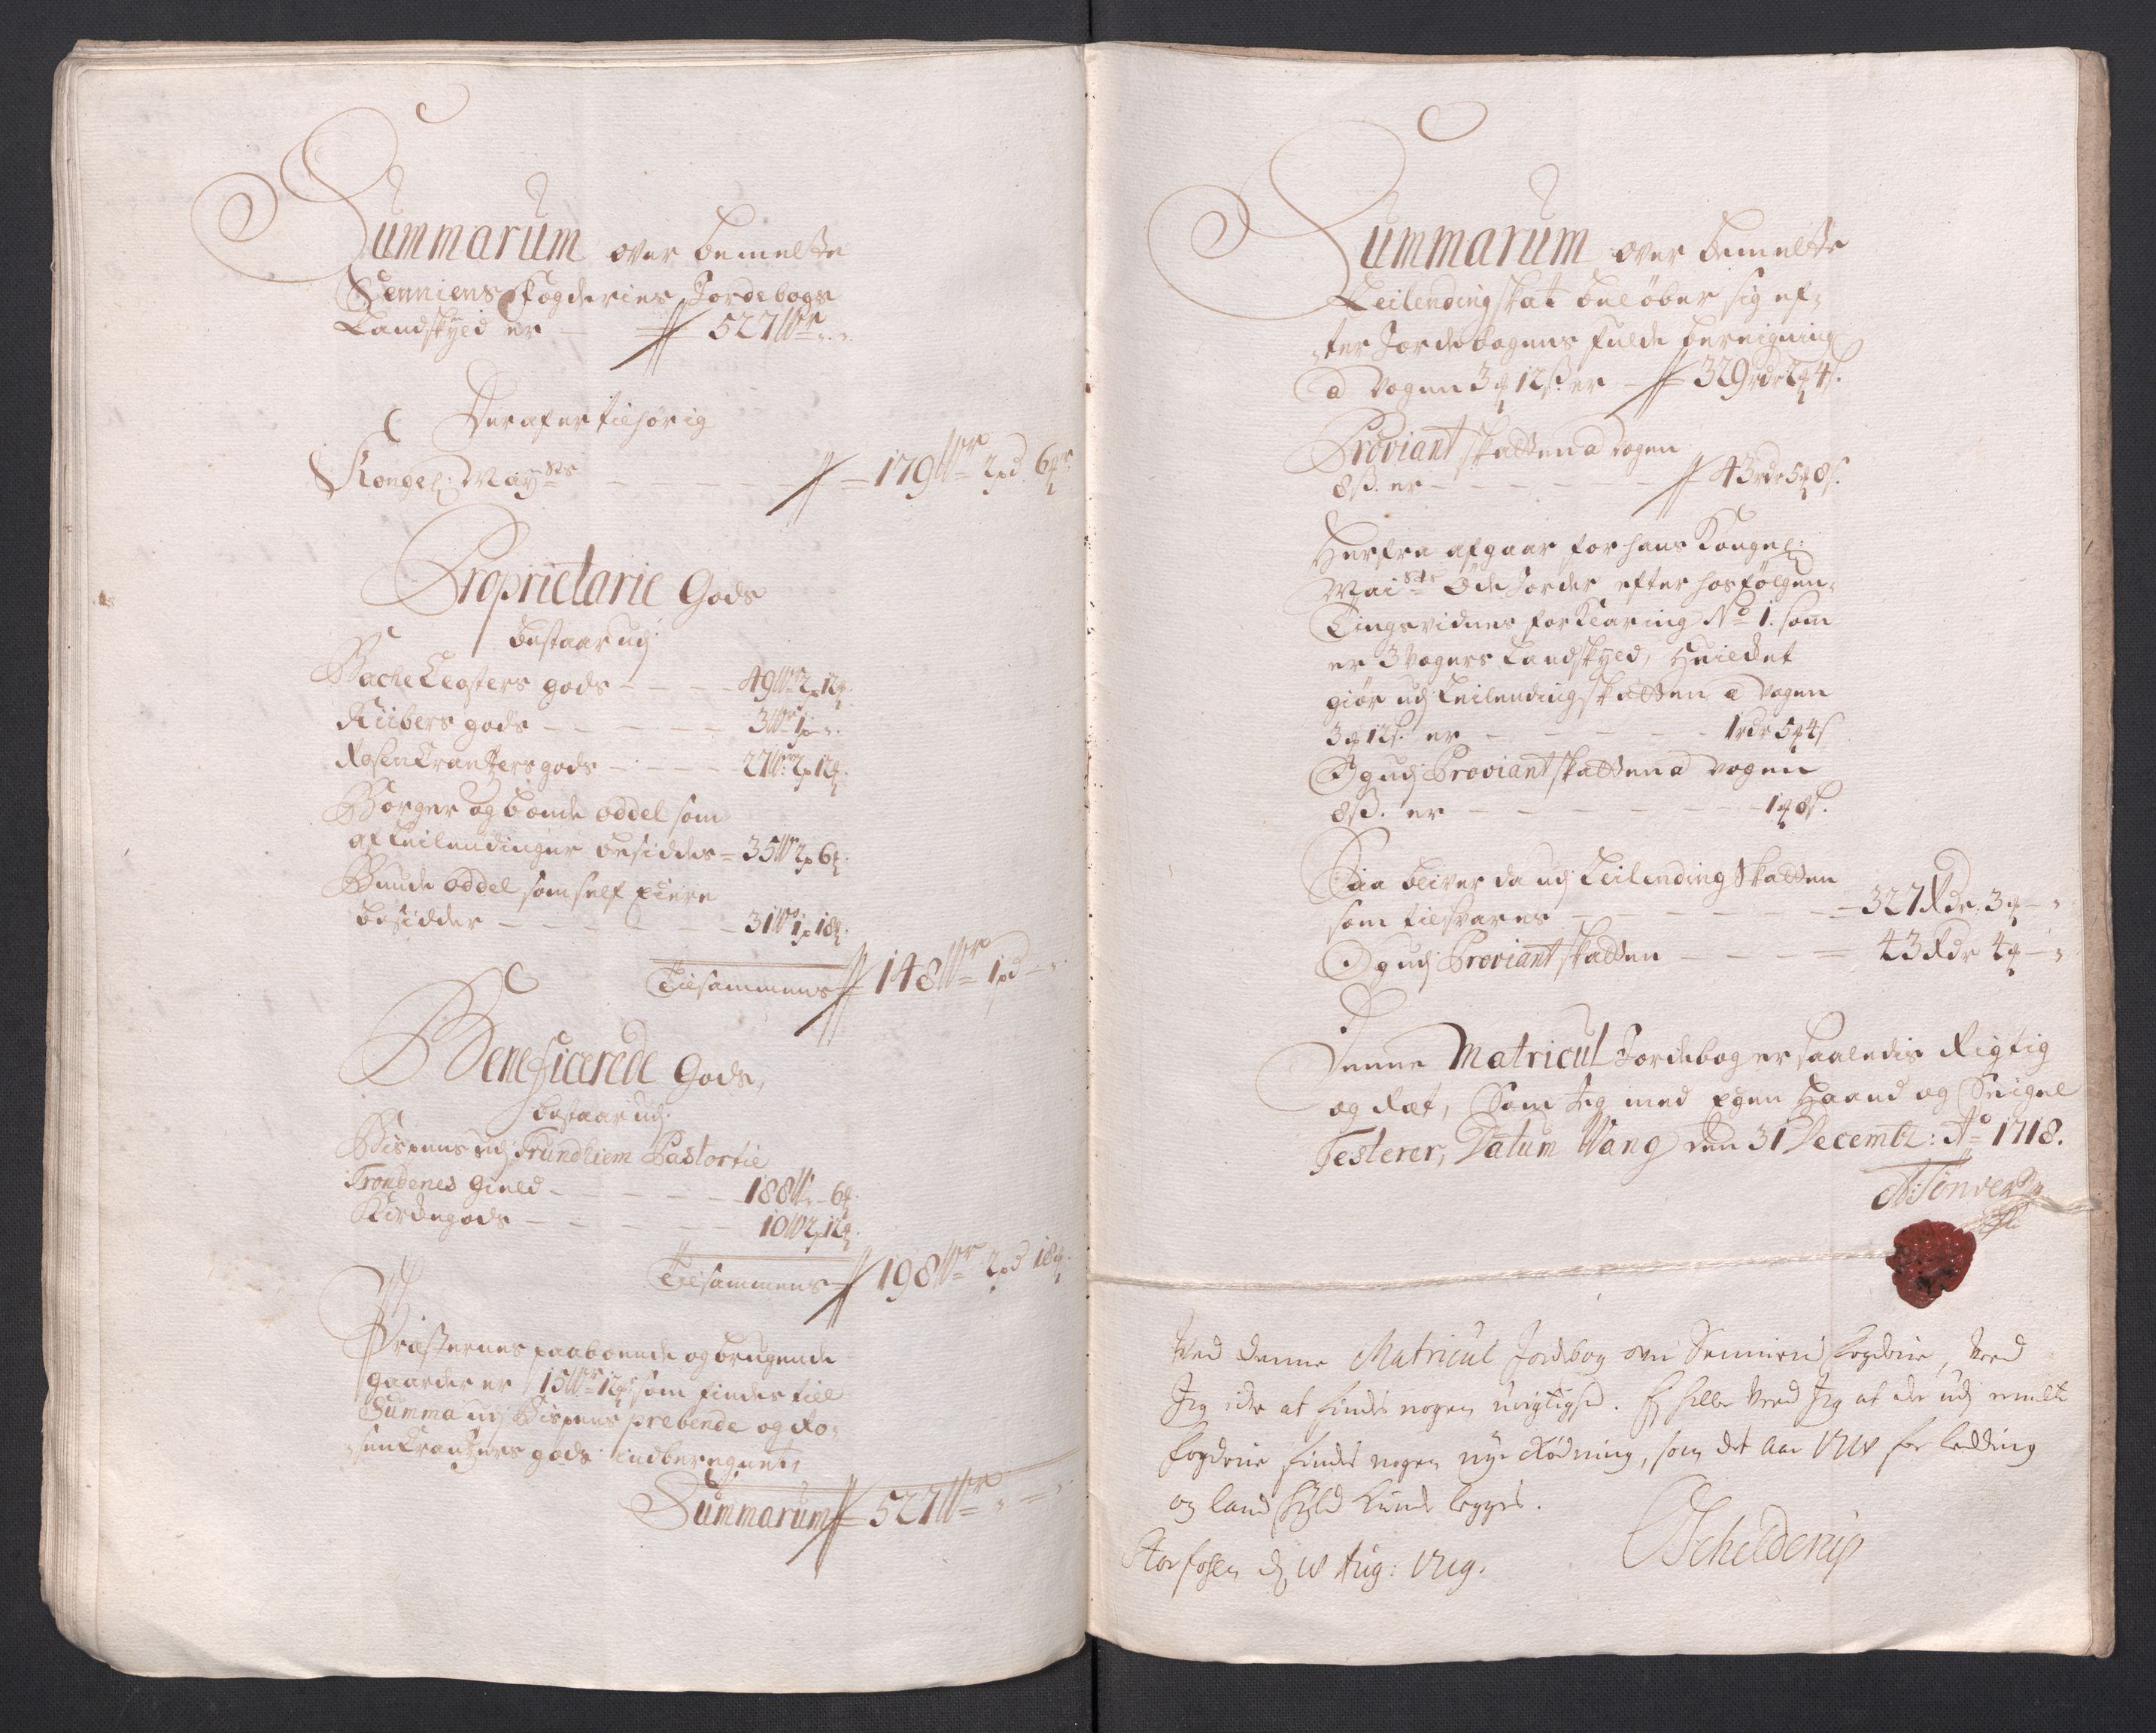 Summarum over bemelte
Senniens Fogderies Jordebogs
Landskyld er — 527 W‸r „ „
Deraf er tilhørig
Kongel: May:sts — — — — 179 W‸r 2 pd 6 ℔r
Proprietarie Gods
bestaar udj
Bache Closters gods — — — 49 W‸r 2 p 12 ℔.
Riibers gods — — — — 3 W‸r 1 p „
Rosenkrantzers gods — — — 27 W‸r 2 p 12 ℔.
Borger og bonde oddel som
af Leilendinger besiddes = 35 W‸r 2 p 6 ℔.
Bunde oddel som self eiere
besidder — — — — — 31 W 1 p 18 ℔.
Tilsammens 148 W‸r 1 pd — „
Beneficerede Gods,
bestaar udj.
Bispens udj Trundhiem Pastortie
Trondenes gield — — — — 188 W „ 6 ℔.
Kirkegods — — — — — 10 W 2 p 12 ℔.
Tilsammens 198 W‸r 2 pd 18 ℔.
Præsternes paaboende og brugende
gaarder er 15 W‸r 12 ℔ som findes till
Summa udj Bispens prebende og Ro-
senkrantzers gods indberegnet,
Summarum 527 W‸r „ — „
Summarum over bemelte
Leilending skat beløber sig ef-
ter Jordebogens fulde beregning
a Vogen 3 ℔ 12 ß er — 329 rdr 2 ℔ 4 ß.
Proviant skatten a Vogen
8 ß. er — — — — — 43 rdr 5 ℔ 8 ß.
Herfra afgaar for hans Kongel:
Mai:sts Øde Jorder efter hosfølgen-
Tingsvidnes forklaring No 1. som
er 3 Vogers Landskyld, Huilchet
giør udj Leilendingskatten a Vogen
3 ℔ 12 ß. er — — — — 1 rdr 5 ℔ 4 ß
Og udj Proviantskatten a Vogen
8 ß. er — — — — — — 1 ℔ 8 ß.
Saa bliver da udj Leilending Skatten
som tilsvares — — — — — 327 Rdr. 3 ℔ — „
Og udj Proviantskatten — — — — 43 Rdr 4 ℔ — „
Denne Matricul Jordebog er saaledis Rigtig
og Ræt, Som Jeg med egen Haand og Seigel
Testerer, Datum Vang den 31 Decembr: Ao 1718.
A: Tønder
Ved denne Matricul Jordebog over Senniens Fogderie, veed
Jeg icke at findes nogen urigtighed. Ej heller veed Jeg at der udj emelte
Fogderie findes nogen nye Rødning, som det Aar 1718 for ledding
og land skyld kunde legges.
Stor fosen dj 18 Aug: 1719.
Schelderup